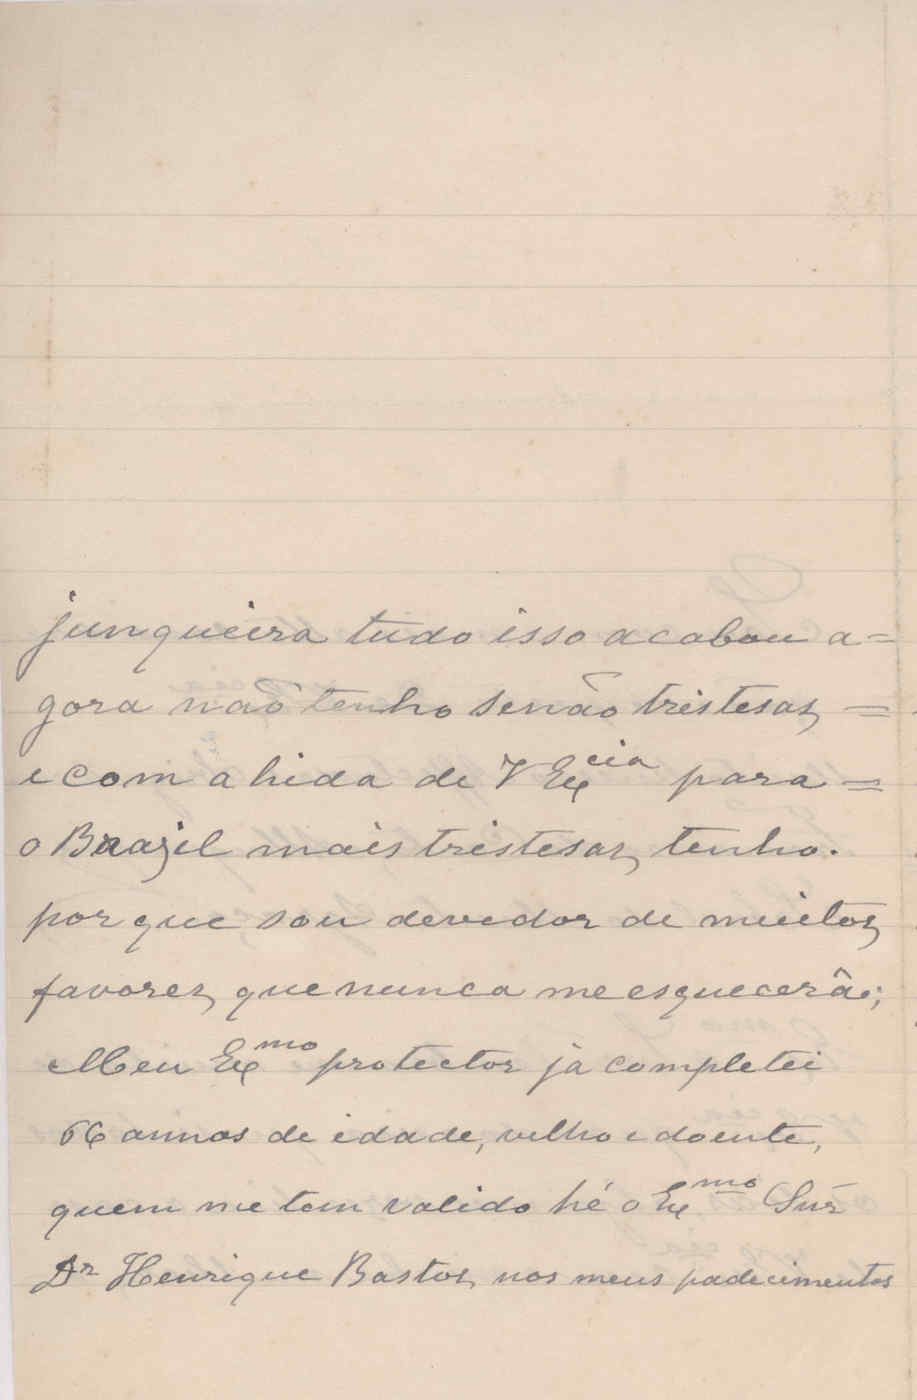 junqueira tudo isso acabou a=
gora naõ tenho senão tristesas =
e com a hida de V Ex.cia para =
o Brazil mais tristesas tenho.
porque sou devedor de muitos
favores que nunca me esquecerão;
Meu Exmo protector já completei
66 annos de idade, velho e doente,
quem me tem valido hé o Exmo Snr
Dr Henrique Bastos nos meus padecimentos